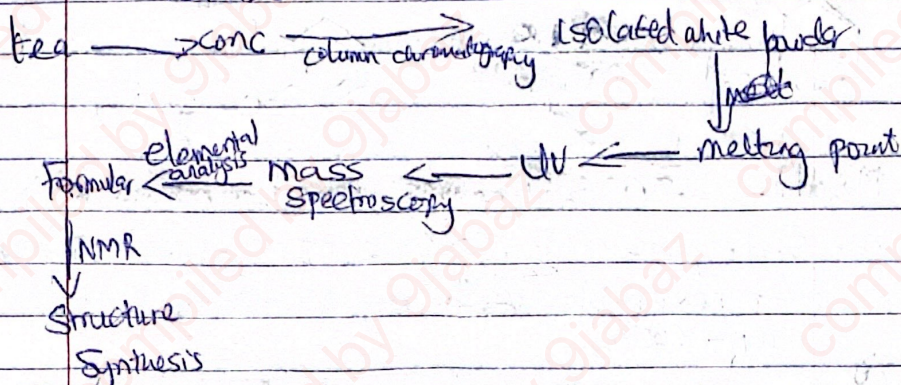 tea → conc → column chromatography isolated white powder
melt
Formular ← elemental analysis mass spectroscopy ← UV ← melting point
NMR
Structure
Synthesis
compiled by 9jabaz